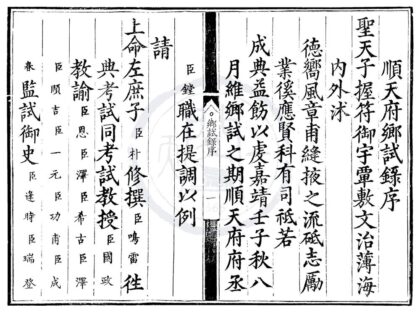 順天府鄉試錄序
聖天子握符御宇覃敷文治薄海
內外沭
德嚮風章甫縫掖之流砥志勵
業徯應賢科有司祗若
成典益飭以虔嘉靖壬子秋八
月維鄉試之期順天府府丞
鄉試錄序
一
臣鏜職在提調以例
請
上命左庶子臣朴修撰臣鳴雷往
典考試同考試教授臣國政
教諭臣恩臣澤臣希古臣澤
臣順吉臣一元臣功甫臣成
春監試御史臣逢時臣瑞登